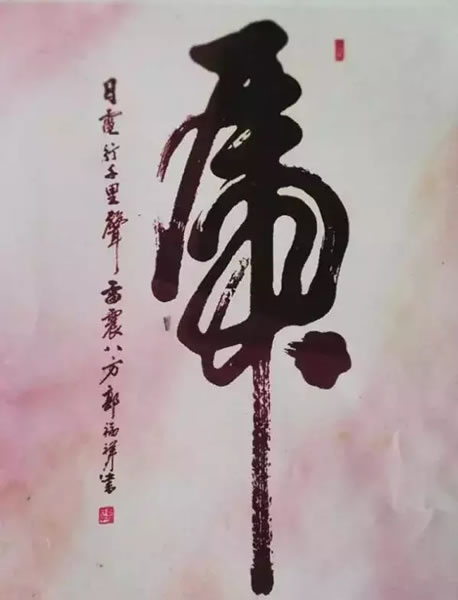 虎
日霞行千里聲雷震八方郭福祥書